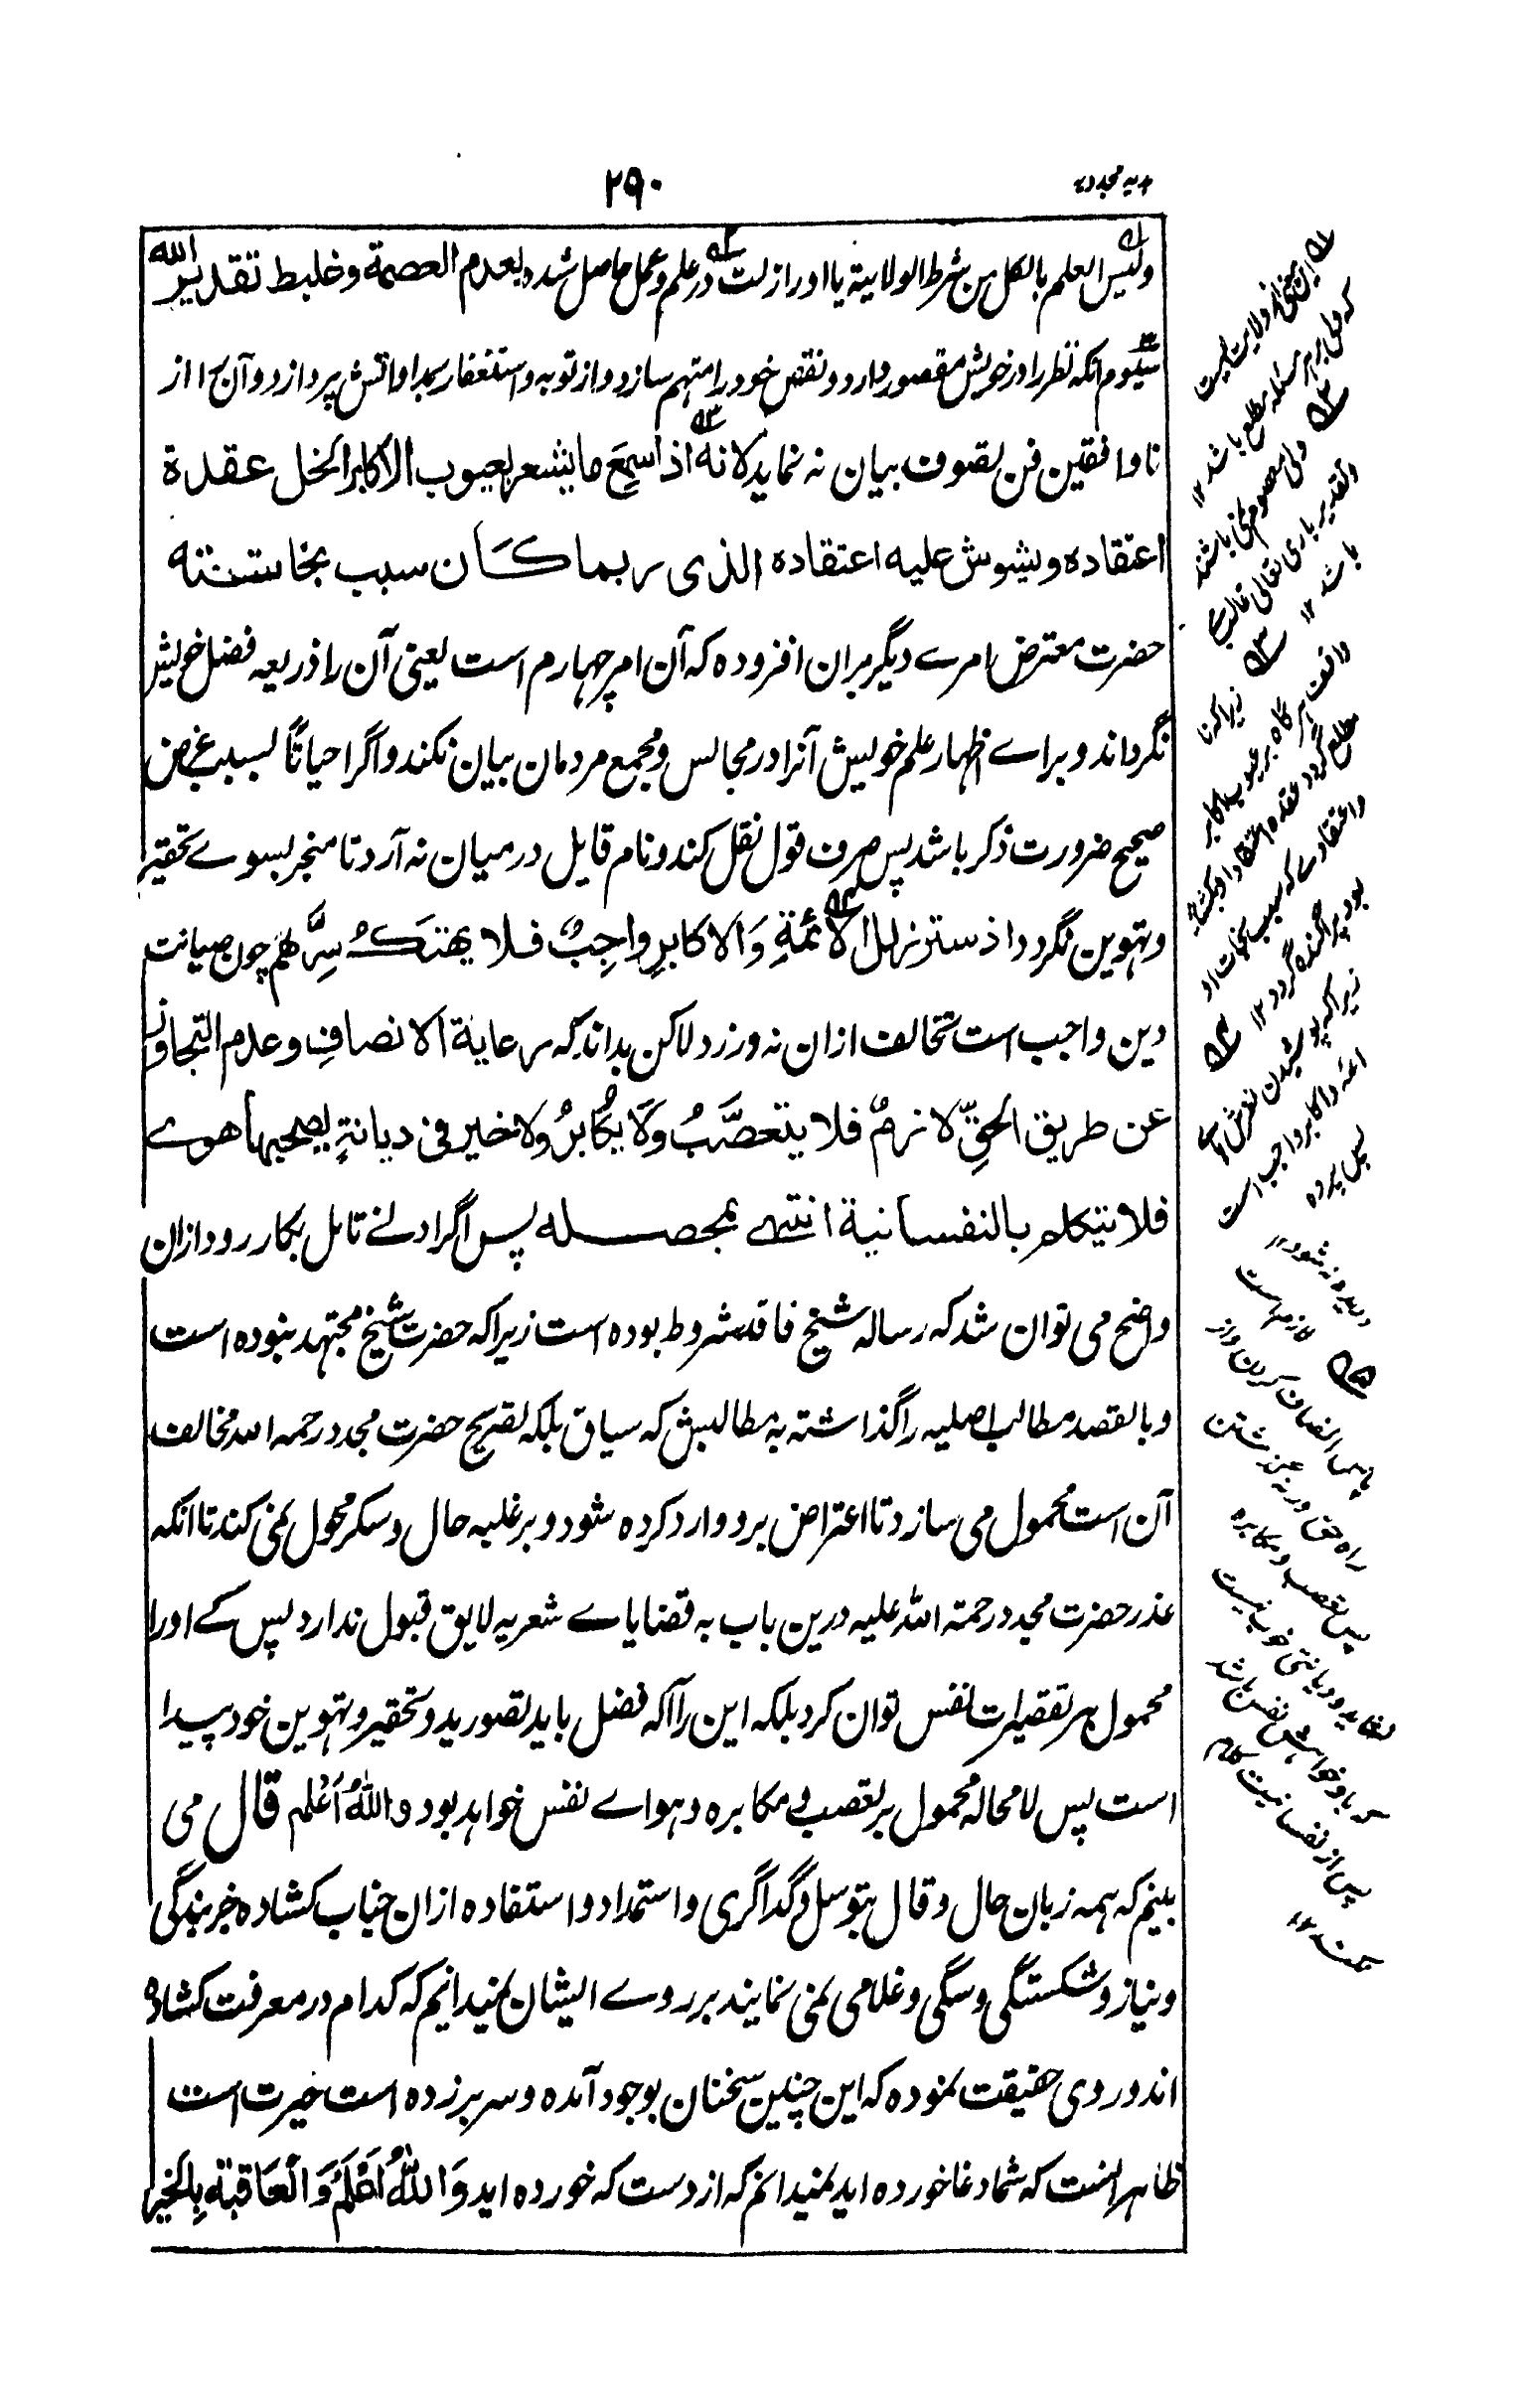 ہدیہ مجددیہ
۲۹۰
ولیس العلم بالکل من شرط الولایة یا اورا زلت در علم و عمل حاصل شده لعدم العصمة وغلبط تقدیر الله
سیوم آنکه نظر را در خویش مقصور دارد و نقص خود را متهم سازد و از توبه و استغفار بمداواتش پردازد و آن را از
ناواقفین فن تصوف بیان نه نماید لانه اذا سمع ما یشعر بعیوب الاکابر انحل عقدة
اعتقاده ویشوش علیه اعتقاده الذی ربما کان سبب نجاتته
حضرت معترض امرے دیگر بران افزوده که آن امر چهارم است یعنی آن را ذریعه فضل خویش
نگرداند و براے اظهار علم خویش آنرا در مجالس و مجمع مردمان بیان نکند و اگر احیاناً بسبب غرض
صحیح ضرورت ذکر باشد پس صرف قول نقل کند و نام قایل درمیان نه آرد تا منجر بسوے تحقیر
وتهوین نگردد اذ ستر زلل الائمةِ وَالاکابرِ واجِبٌ فلا یهتکُ سِرَّهُم چون صیانت
دین واجب است تخالف ازان نه ورزد لاکن بداند که رعایة الانصافِ وعدم التجاوز
عن طریق الحقِّ لازمٌ فلا یتعصَّبُ وَلَا یُکابرُ ولا خیر فی دیانةٍ یصحبها هوے
فلا یتکلم بالنفسانیة انتهے بمحصله پس اگر ادنے تامل بکار رود ازان
واضح می توان شد که رساله شیخ فاقد شروط بوده است زیراکه حضرت شیخ مجتهد نبوده است
وبالقصد مطالب اصلیه را گذاشته به مطالبش که سیاق بلکه تصریح حضرت مجدد رحمه الله مخالف
آن است محمول می سازد تا اعتراض برد وارد کرده شود و بر غلبه حال و سکر محمول نمی کند تا آنکه
عذر حضرت مجدد رحمته الله علیه درین باب به قضایاے شعریه لایق قبول ندارد پس کے اورا
محمول بر تقصیرات نفس توان کرد بلکه این را آله فضل باید تصورید و تحقیر و تهوین خود پیدا
است پس لا محاله محمول بر تعصب و مکابره و هواے نفس خواهد بود والله اَعْلم قال می
بینم که همه زبان حال و قال بتوسل و گداگری و استمداد و استفاده ازان جناب کشاده خبر بندگی
ونیاز و شکستگی و سگی و غلامی نمی نمایند بر روے ایشان نمیدانیم که کدام در معرفت کشاده
اند و ردی حقیقت نموده که این چنین سخنان بوجود آمده و سر برزده است حیرت است
ظاهر اینست که شما دغا خورده اید نمیدانم که از دست که خورده اید وَاللهُ اَعْلَمُ وَالْعَاقبة بِالخیر
که ولی بر هر مسئله مطلع باشد ۱۲
ولی معصوم نمی باشد
و تقدیر باری تعالی غالب
باشد ۱۲
زیراکه نا
واقف هرگاه بر عیوب اکابر
مطلع گردد عقده اعتقاد او بکشاید
و اعتقادے که سبب نجات او
بود پراگنده گردد ۱۲
زیراکه پوشیدن لغزش هاے
ائمه و اکابر واجب است
پس پرده
دریده نه شود ۱۲
لازم است
پس انصاف کردن و از
راه حق در نه گذشتن
پس تعصب و مکابره
نماید و دیانتی خوب نیست
که با و خواهش نفس باشد
پس از نفسانیت کلام
نکند ۱۲